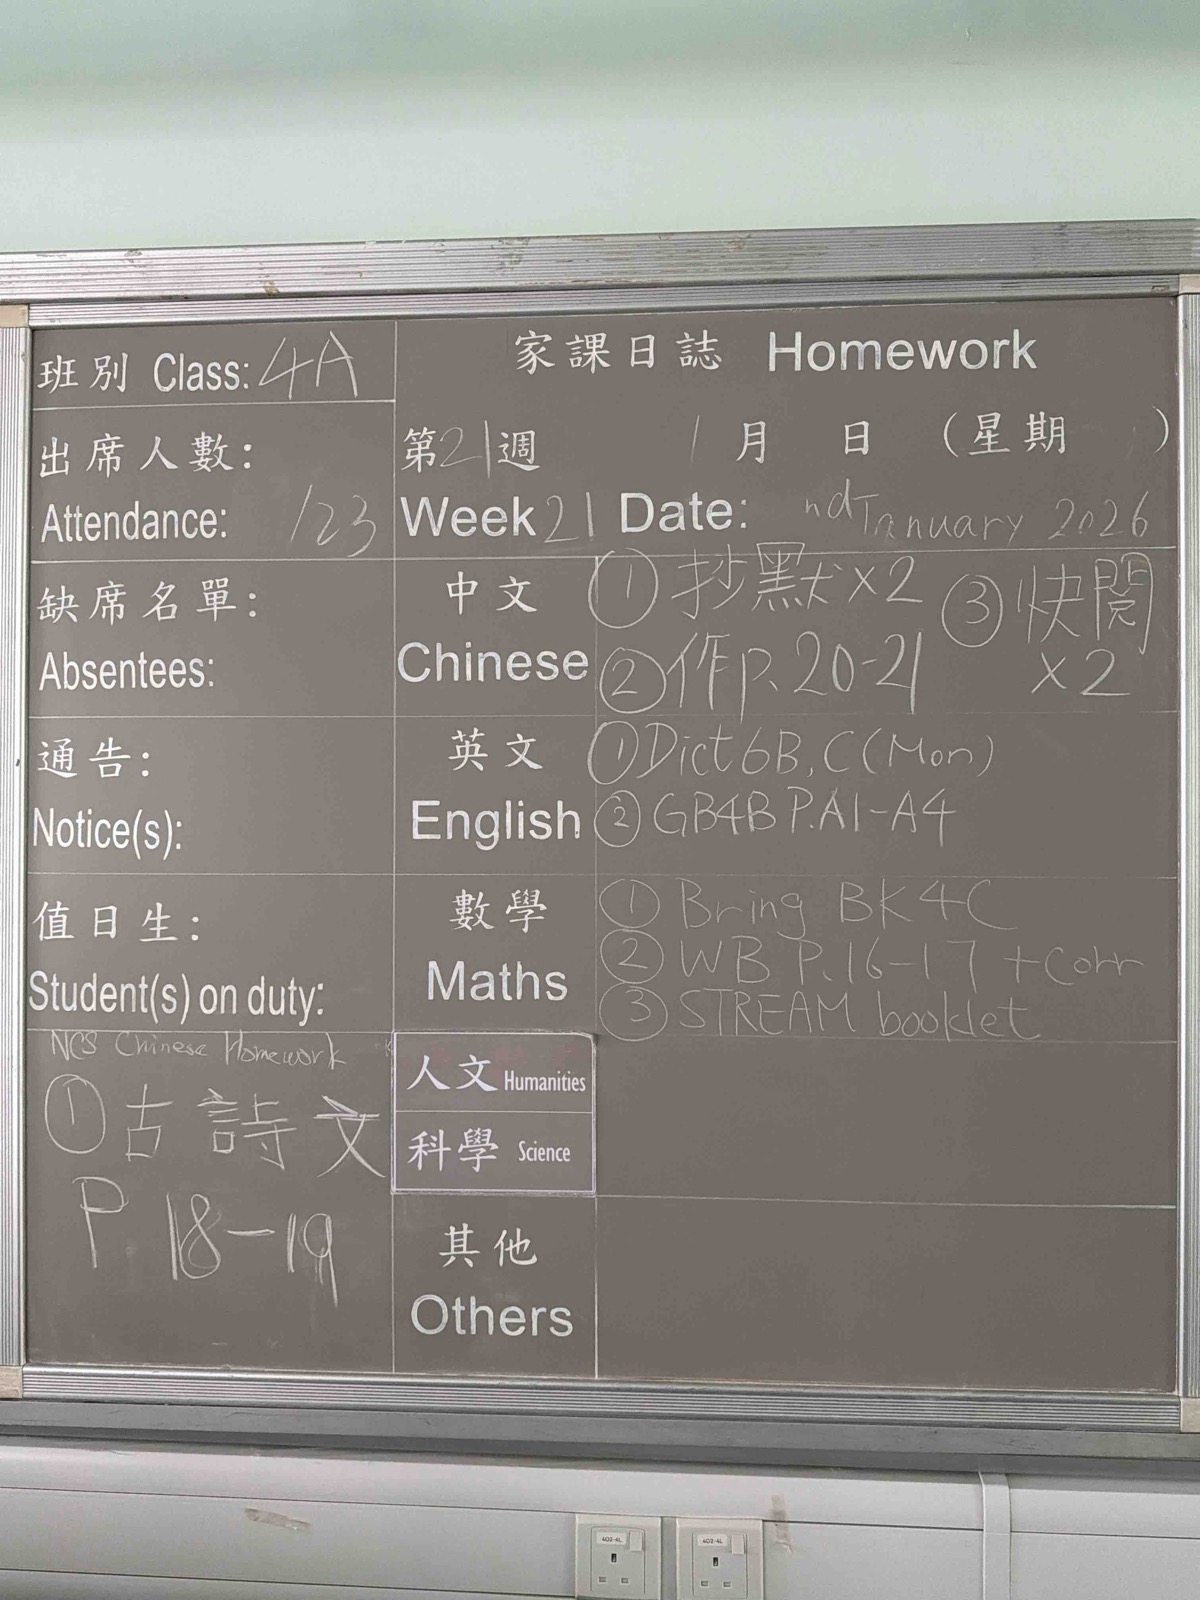 班別 Class: 4A
家課日誌 Homework
出席人數:
Attendance: /23
第21週 1月 日 (星期 )
Week 21 Date: nd January 2026
缺席名單:
Absentees:
中文
Chinese
① 抄默 x2
② 作 p. 20-21
③ 快閱
x2
通告:
Notice(s):
英文
English
① Dict 6B, C (Mon)
② GB4B P.A1-A4
值日生:
Student(s) on duty:
數學
Maths
① Bring BK 4C
② WB P.16-17 + Corr
③ STREAM booklet
NCS Chinese Homework
① 古詩文
P. 18-19
人文 Humanities
科學 Science
其他
Others
402-4L
402-4L